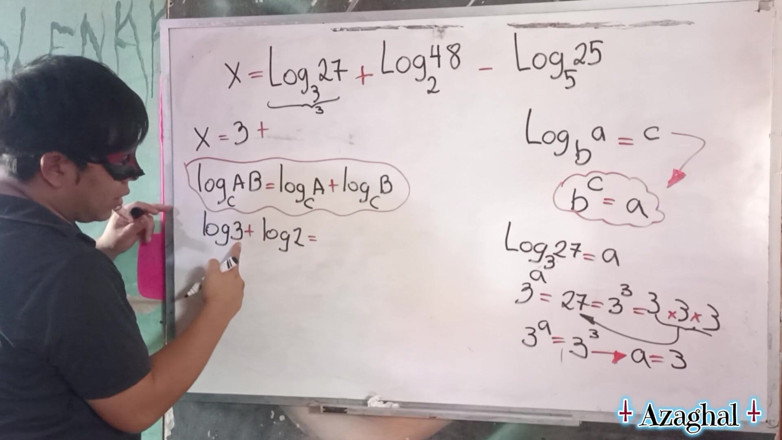 X = Log₃27 + Log₂48 - Log₅25
3
X = 3 +
log_C AB = log_C A + log_C B
log3 + log2 =
Log_b a = c
b^c = a
Log₃27 = a
3^a = 27 = 3³ = 3 x 3 x 3
3^a = 3³ → a = 3
Azaghal